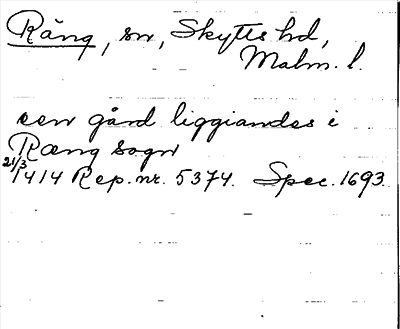 Räng, sn, Skytts hd,
Malm. l.
een gård liggiandes i
Ræng sogn
21/3 1414 Rep. nr. 5374. Spec. 1693.